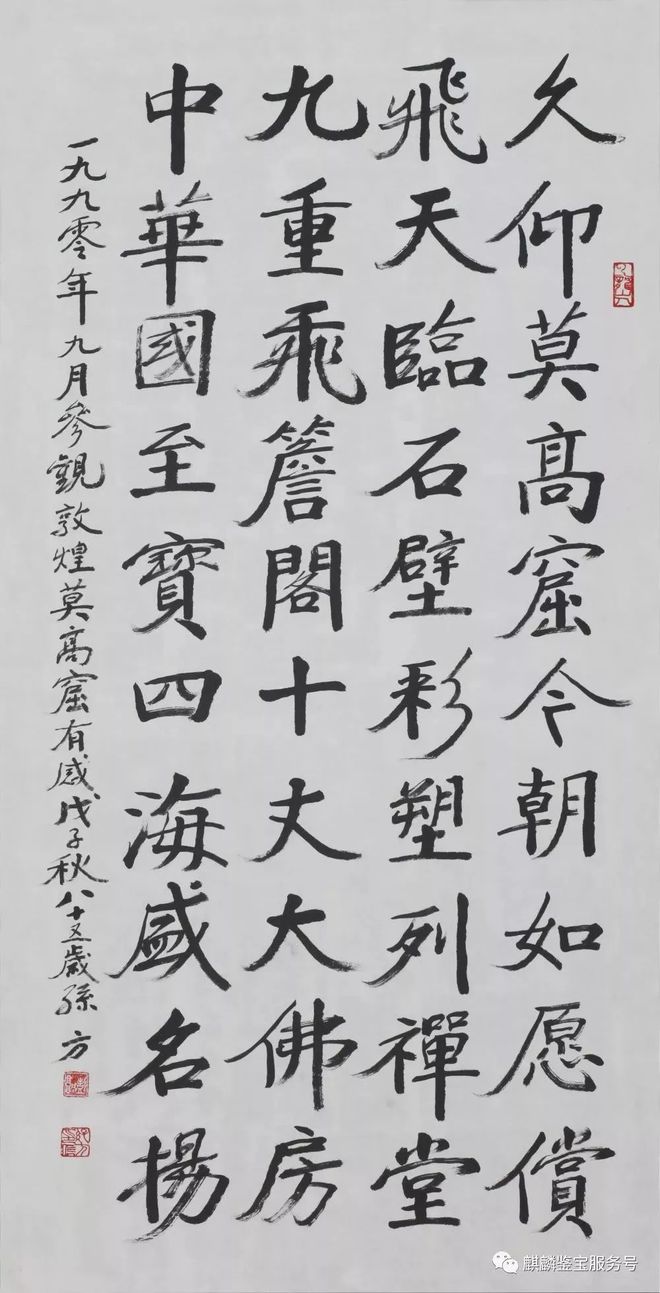 久仰莫高窟今朝如愿償
飛天臨石壁彩塑列禪堂
九重飛簷閣十丈大佛房
中華國至寶四海盛名揚
一九九零年九月參觀敦煌莫高窟有感戊子秋八十五歲孫方
麒麟鉴宝服务号